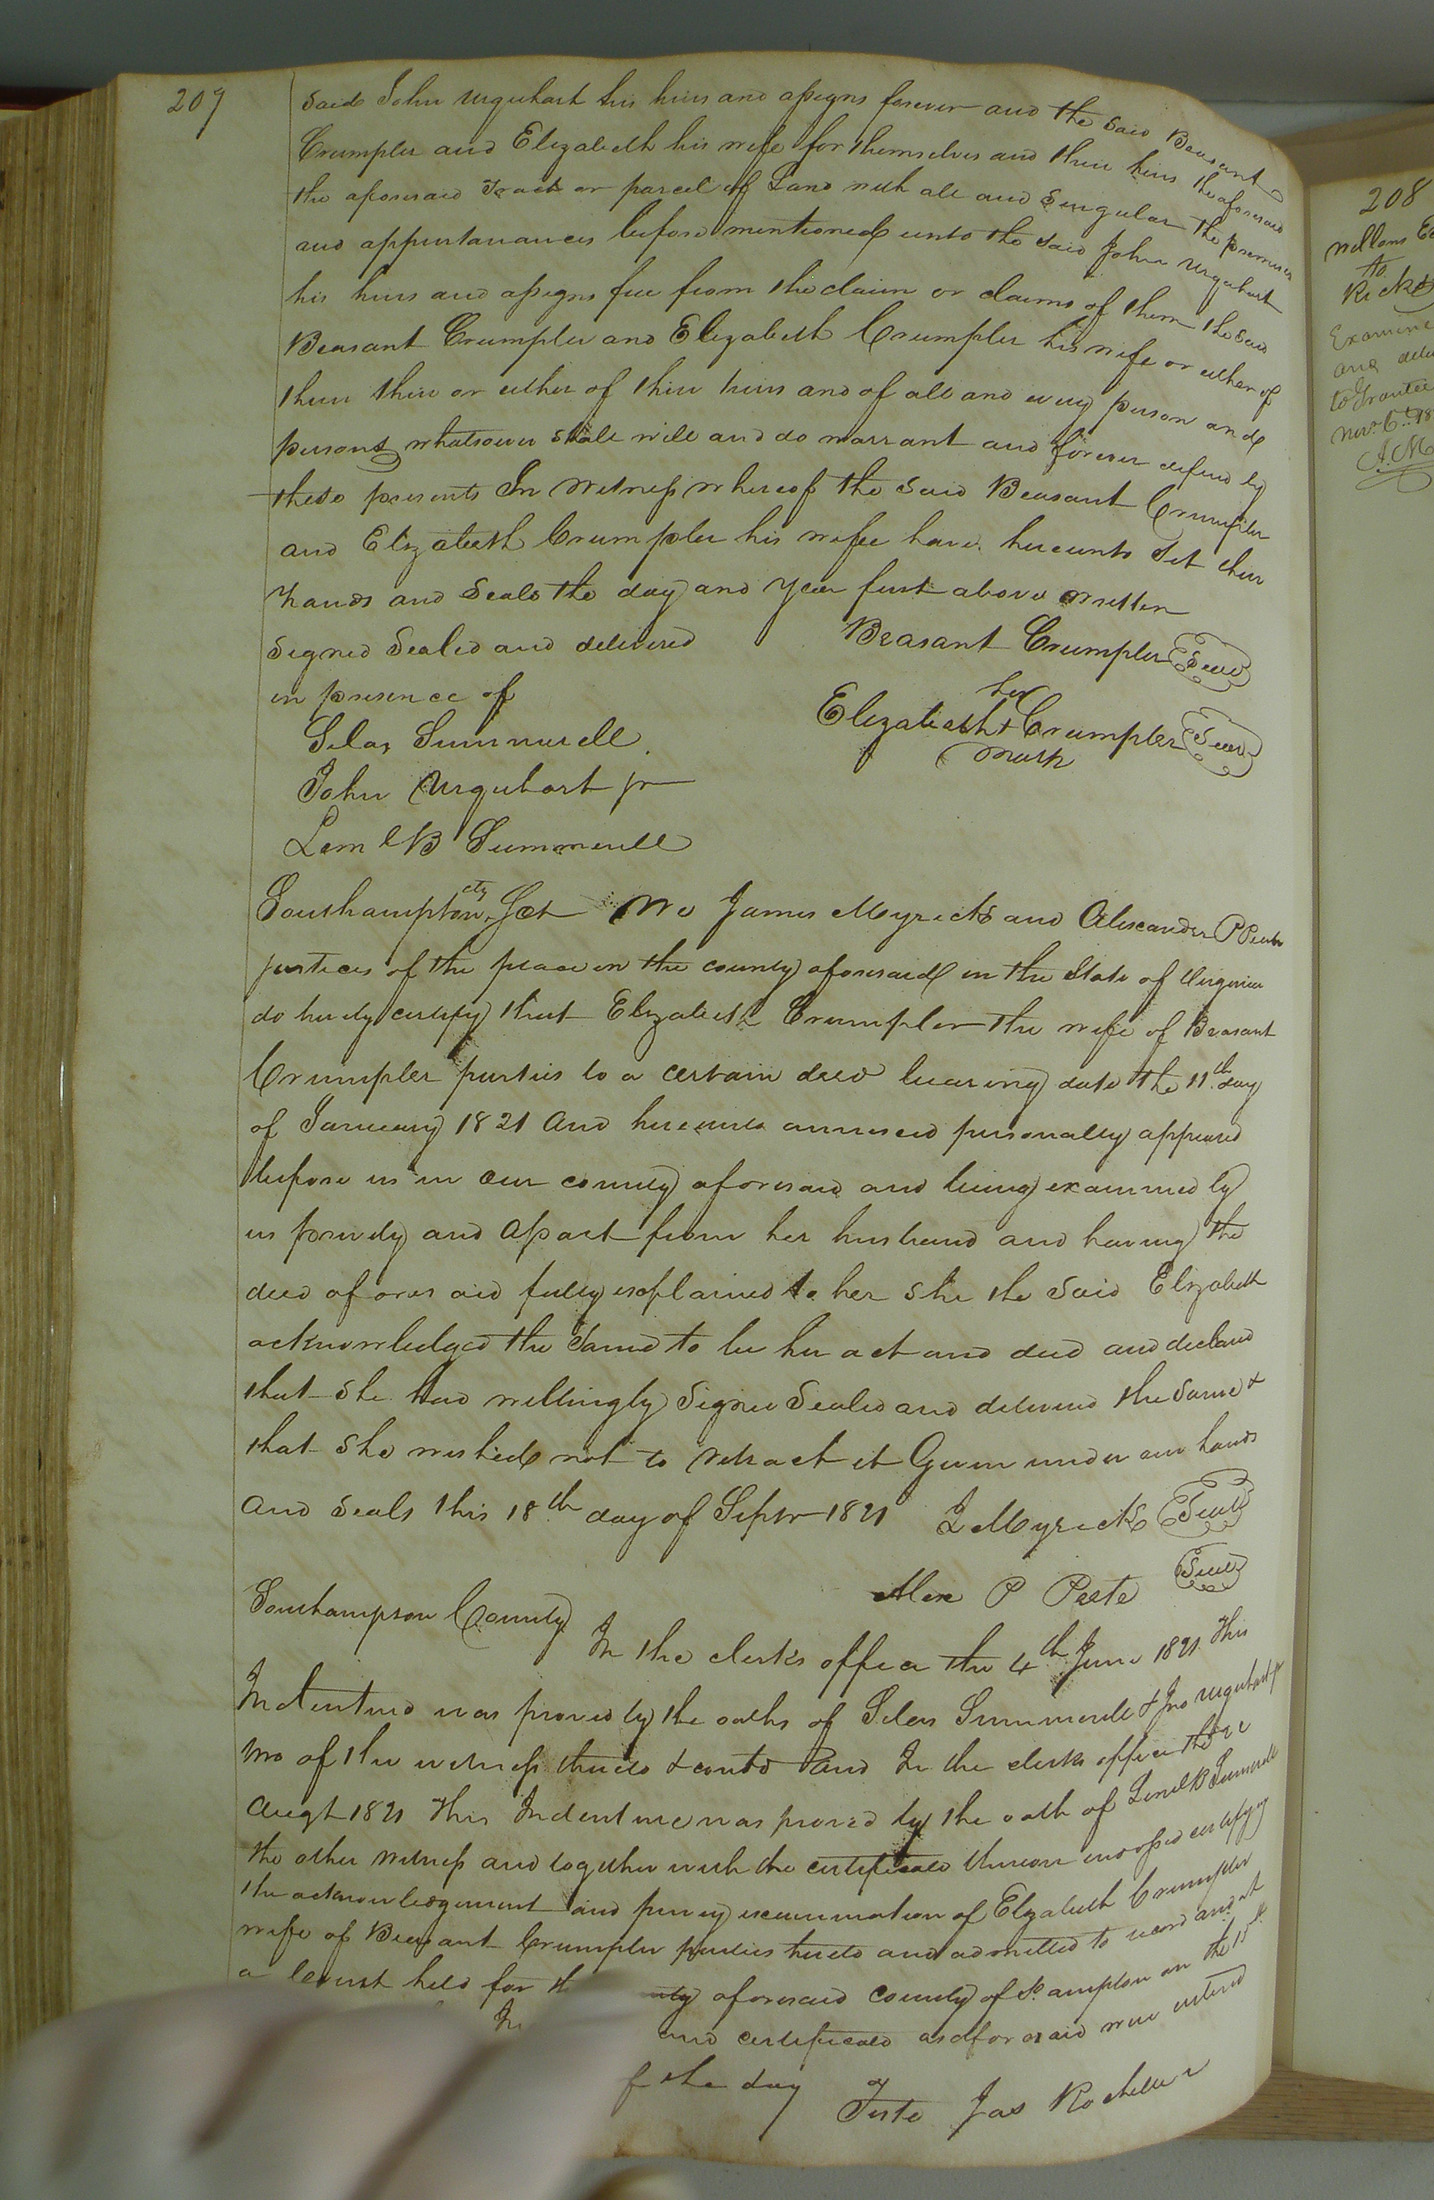 207
Said John Urquhart his heirs and assigns forever and the said Beasant
Crumpler and Elizabeth his wife for themselves and their heirs the aforesaid
the aforesaid Tract or parcel of Land with all and Singular the premises
and appurtanances before mentioned unto the said John Urquhart
his heirs and assigns free from the claim or claims of them the said
Beasant Crumpler and Elizabeth Crumpler his wife or either of
them their or either of their heirs and of all and every person and
persons whatsoever shall will and do warrant and forever defend by
these presents In Witness whereof the said Beasant Crumpler
and Elizabeth Crumpler his wife have hereunto Set their
hands and Seals the day and year first above written
Signed Sealed and delivered
in presence of
Beasant Crumpler Seal
her
Elizabeth + Crumpler Seal
mark
Silas Summerell
John Urquhart jr
Leml B Summerell
Southampton cty Sct We James Myrick and Alexander P Peete
justices of the peace in the county aforesaid in the State of Virginia
do hereby certify that Elizabeth Crumpler the wife of Beasant
Crumpler parties to a certain deed bearing date the 11th day
of January 1821 and hereunto annexed personally appeared
before us in our county aforesaid and being examined by
us privily and apart from her husband and having the
deed aforesaid fully explained to her She the Said Elizabeth
acknowledged the Same to be her act and deed and declared
that She had willingly Signed Sealed and delivered the Same &
that She wished not to retract it Given under our hands
and Seals this 18th day of Septr 1821 J Myrick Seal
Alex P Peete Seal
Southampton County
In the clerks office the 4th June 1821 This
Indenture was proved by the oaths of Silas Summerell & Jno Urquhart jr
two of the witness thereto & contd and In the clerks office the
Augt 1821 This Indenture was proved by the oath of Leml B Summerell
the other witness and together with the certificate thereon endorsed certifying
the acknowledgement and privy examination of Elizabeth Crumpler
wife of Beasant Crumpler parties hereto and admitted to record and at
a Court held for the aforesaid county of So ampton on the 15th
In and certificate as aforesaid were entered
of the day
Teste Jas Rochelle
208
to
Ricks
Examined
and
to Grantee
Novr 6th 18